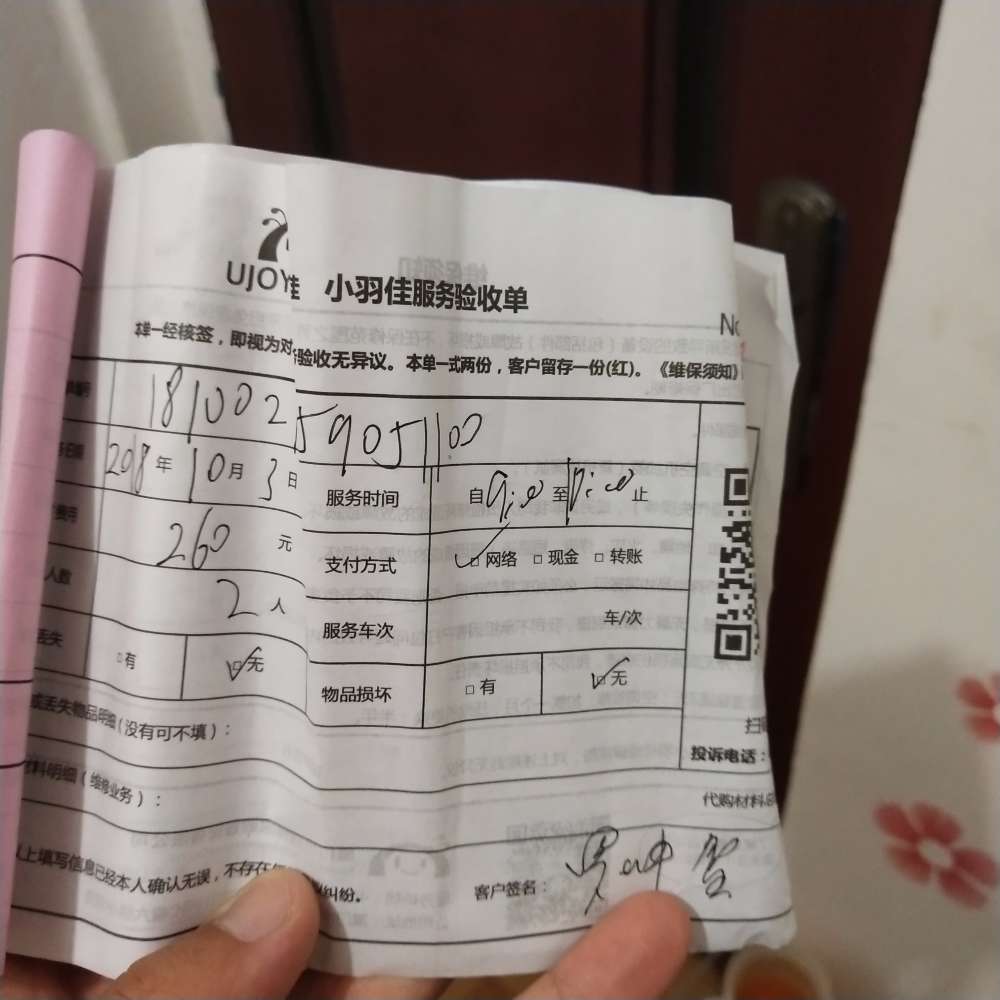 UJOY佳 小羽佳服务验收单
No
本单一经核签，即视为对 验收无异议。本单一式两份，客户留存一份(红)。《维保须知》
181002 59051100
2018年10月3日 服务时间 自9:00至11:00止
费用 260元 支付方式 ☑网络 □现金 □转账
人数 2人 服务车次 车/次
丢失 □有 ☑无 物品损坏 □有 ☑无
或丢失物品明细（没有可不填）：
投诉电话：
材料明细（维修业务）：
代购材料
以上填写信息已经本人确认无误，不存在 纠纷。 客户签名：